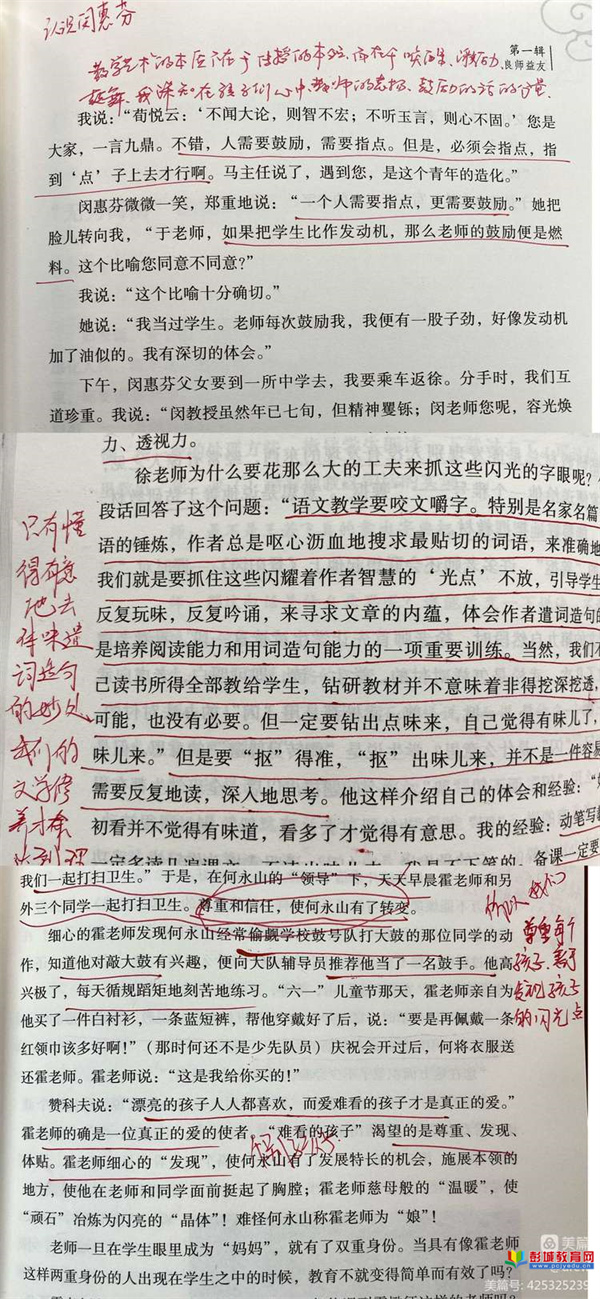 认识闵惠芬
教学艺术的本质不在于传授的本领,而在于唤醒、激励、
鼓舞。我深知在孩子们心中教师的表扬、鼓励的话的分量。
第一辑
良师益友
我说:“荀悦云:‘不闻大论,则智不宏;不听玉言,则心不固。’您是
大家,一言九鼎。不错,人需要鼓励,需要指点。但是,必须会指点,指
到‘点’子上去才行啊。马主任说了,遇到您,是这个青年的造化。”
闵惠芬微微一笑,郑重地说:“一个人需要指点,更需要鼓励。”她把
脸儿转向我,“于老师,如果把学生比作发动机,那么老师的鼓励便是燃
料。这个比喻您同意不同意?”
我说:“这个比喻十分确切。”
她说:“我当过学生。老师每次鼓励我,我便有一股子劲,好像发动机
加了油似的。我有深切的体会。”
下午,闵惠芬父女要到一所中学去,我要乘车返徐。分手时,我们互
道珍重。我说:“闵教授虽然年已七旬,但精神矍铄;闵老师您呢,容光焕
力、透视力。
徐老师为什么要花那么大的工夫来抓这些闪光的字眼呢?
段话回答了这个问题:“语文教学要咬文嚼字。特别是名家名篇
语的锤炼,作者总是呕心沥血地搜求最贴切的词语,来准确地
我们就是要抓住这些闪耀着作者智慧的‘光点’不放,引导学生
反复玩味,反复吟诵,来寻求文章的内蕴,体会作者遣词造句的
是培养阅读能力和用词造句能力的一项重要训练。当然,我们不
己读书所得全部教给学生,钻研教材并不意味着非得挖深挖透,
可能,也没有必要。但一定要钻出点味来,自己觉得有味儿了,
味儿来。”但是要“抠”得准,“抠”出味儿来,并不是一件容易
需要反复地读,深入地思考。他这样介绍自己的体会和经验:“
初看并不觉得有味道,看多了才觉得有意思。我的经验:动笔写教
一定多读几遍课文,不读出味儿来,我是不下笔的。备课一定要
只有懂
得有意
地去
评味遣
词造句
的妙处
我们的
文学修
养才会
我们一起打扫卫生。”于是,在何永山的“领导”下,天天早晨霍老师和另
外三个同学一起打扫卫生。尊重和信任,使何永山有了转变。
细心的霍老师发现何永山经常偷觑学校鼓号队打大鼓的那位同学的动
作,知道他对敲大鼓有兴趣,便向大队辅导员推荐他当了一名鼓手。他高
兴极了,每天循规蹈矩地刻苦地练习。“六一”儿童节那天,霍老师亲自为
他买了一件白衬衫,一条蓝短裤,帮他穿戴好了后,说:“要是再佩戴一条
红领巾该多好啊!”(那时何还不是少先队员)庆祝会开过后,何将衣服送
还霍老师。霍老师说:“这是我给你买的!”
赞科夫说:“漂亮的孩子人人都喜欢,而爱难看的孩子才是真正的爱。”
霍老师的确是一位真正的爱的使者,“难看的孩子”渴望的是尊重、发现、
体贴。霍老师细心的“发现”,使何永山有了发展特长的机会,施展本领的
地方,使他在老师和同学面前挺起了胸膛;霍老师慈母般的“温暖”,使
“顽石”冶炼为闪亮的“晶体”!难怪何永山称霍老师为“娘”!
老师一旦在学生眼里成为“妈妈”,就有了双重身份。当具有像霍老师
这样两重身份的人出现在学生之中的时候,教育不就变得简单而有效了吗?
所以,我们
尊重每个
孩子,善于
发现孩子
的闪光点
美篇
彭城教育网
www.pcjyedu.cn
美篇号:425325239